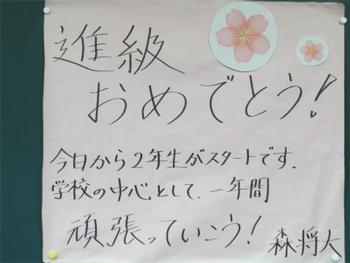 進級
おめでとう!
今日から2年生がスタートです.
学校の中心として、一年間
頑張っていこう!
森將大